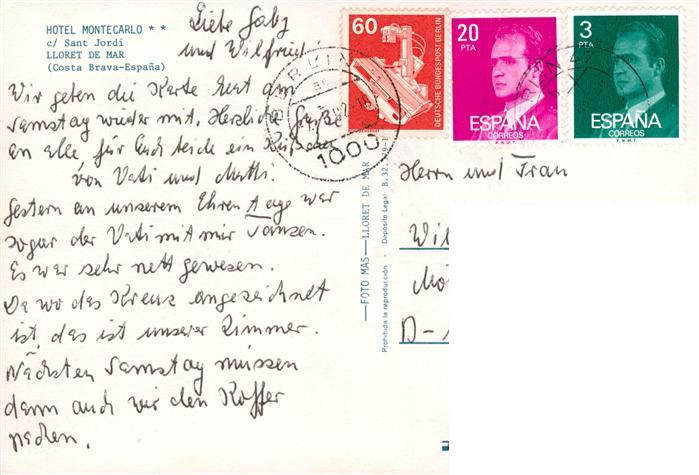 HOTEL MONTECARLO * *
c/ Sant Jordi
LLORET DE MAR
(Costa Brava-España)
Liebe Gaby
und Wilfried!
Wir geben die Karte Kurt am
Samstag wieder mit. Herzliche Grüße
an alle, für Euch beide ein Küßchen
von Vati und Mutti.
Gestern an unserem Ehren Tage war
sogar der Vati mit mir Tanzen.
Es war sehr nett gewesen.
Da wo das Kreuz angezeichnet
ist, das ist unser Zimmer.
Nächsten Samstag müssen
dann auch wir den Koffer
packen.
60
DEUTSCHE BUNDESPOST BERLIN
20
PTA
ESPAÑA
CORREOS
F.N.M.T.
3
PTA
ESPAÑA
CORREOS
F.N.M.T.
BERLIN
1000
FOTO MAS — LLORET DE MAR
Prohibida la reproducción - Depósito Legal B. 32.
Herrn und Frau
Wil
Mö
D-1